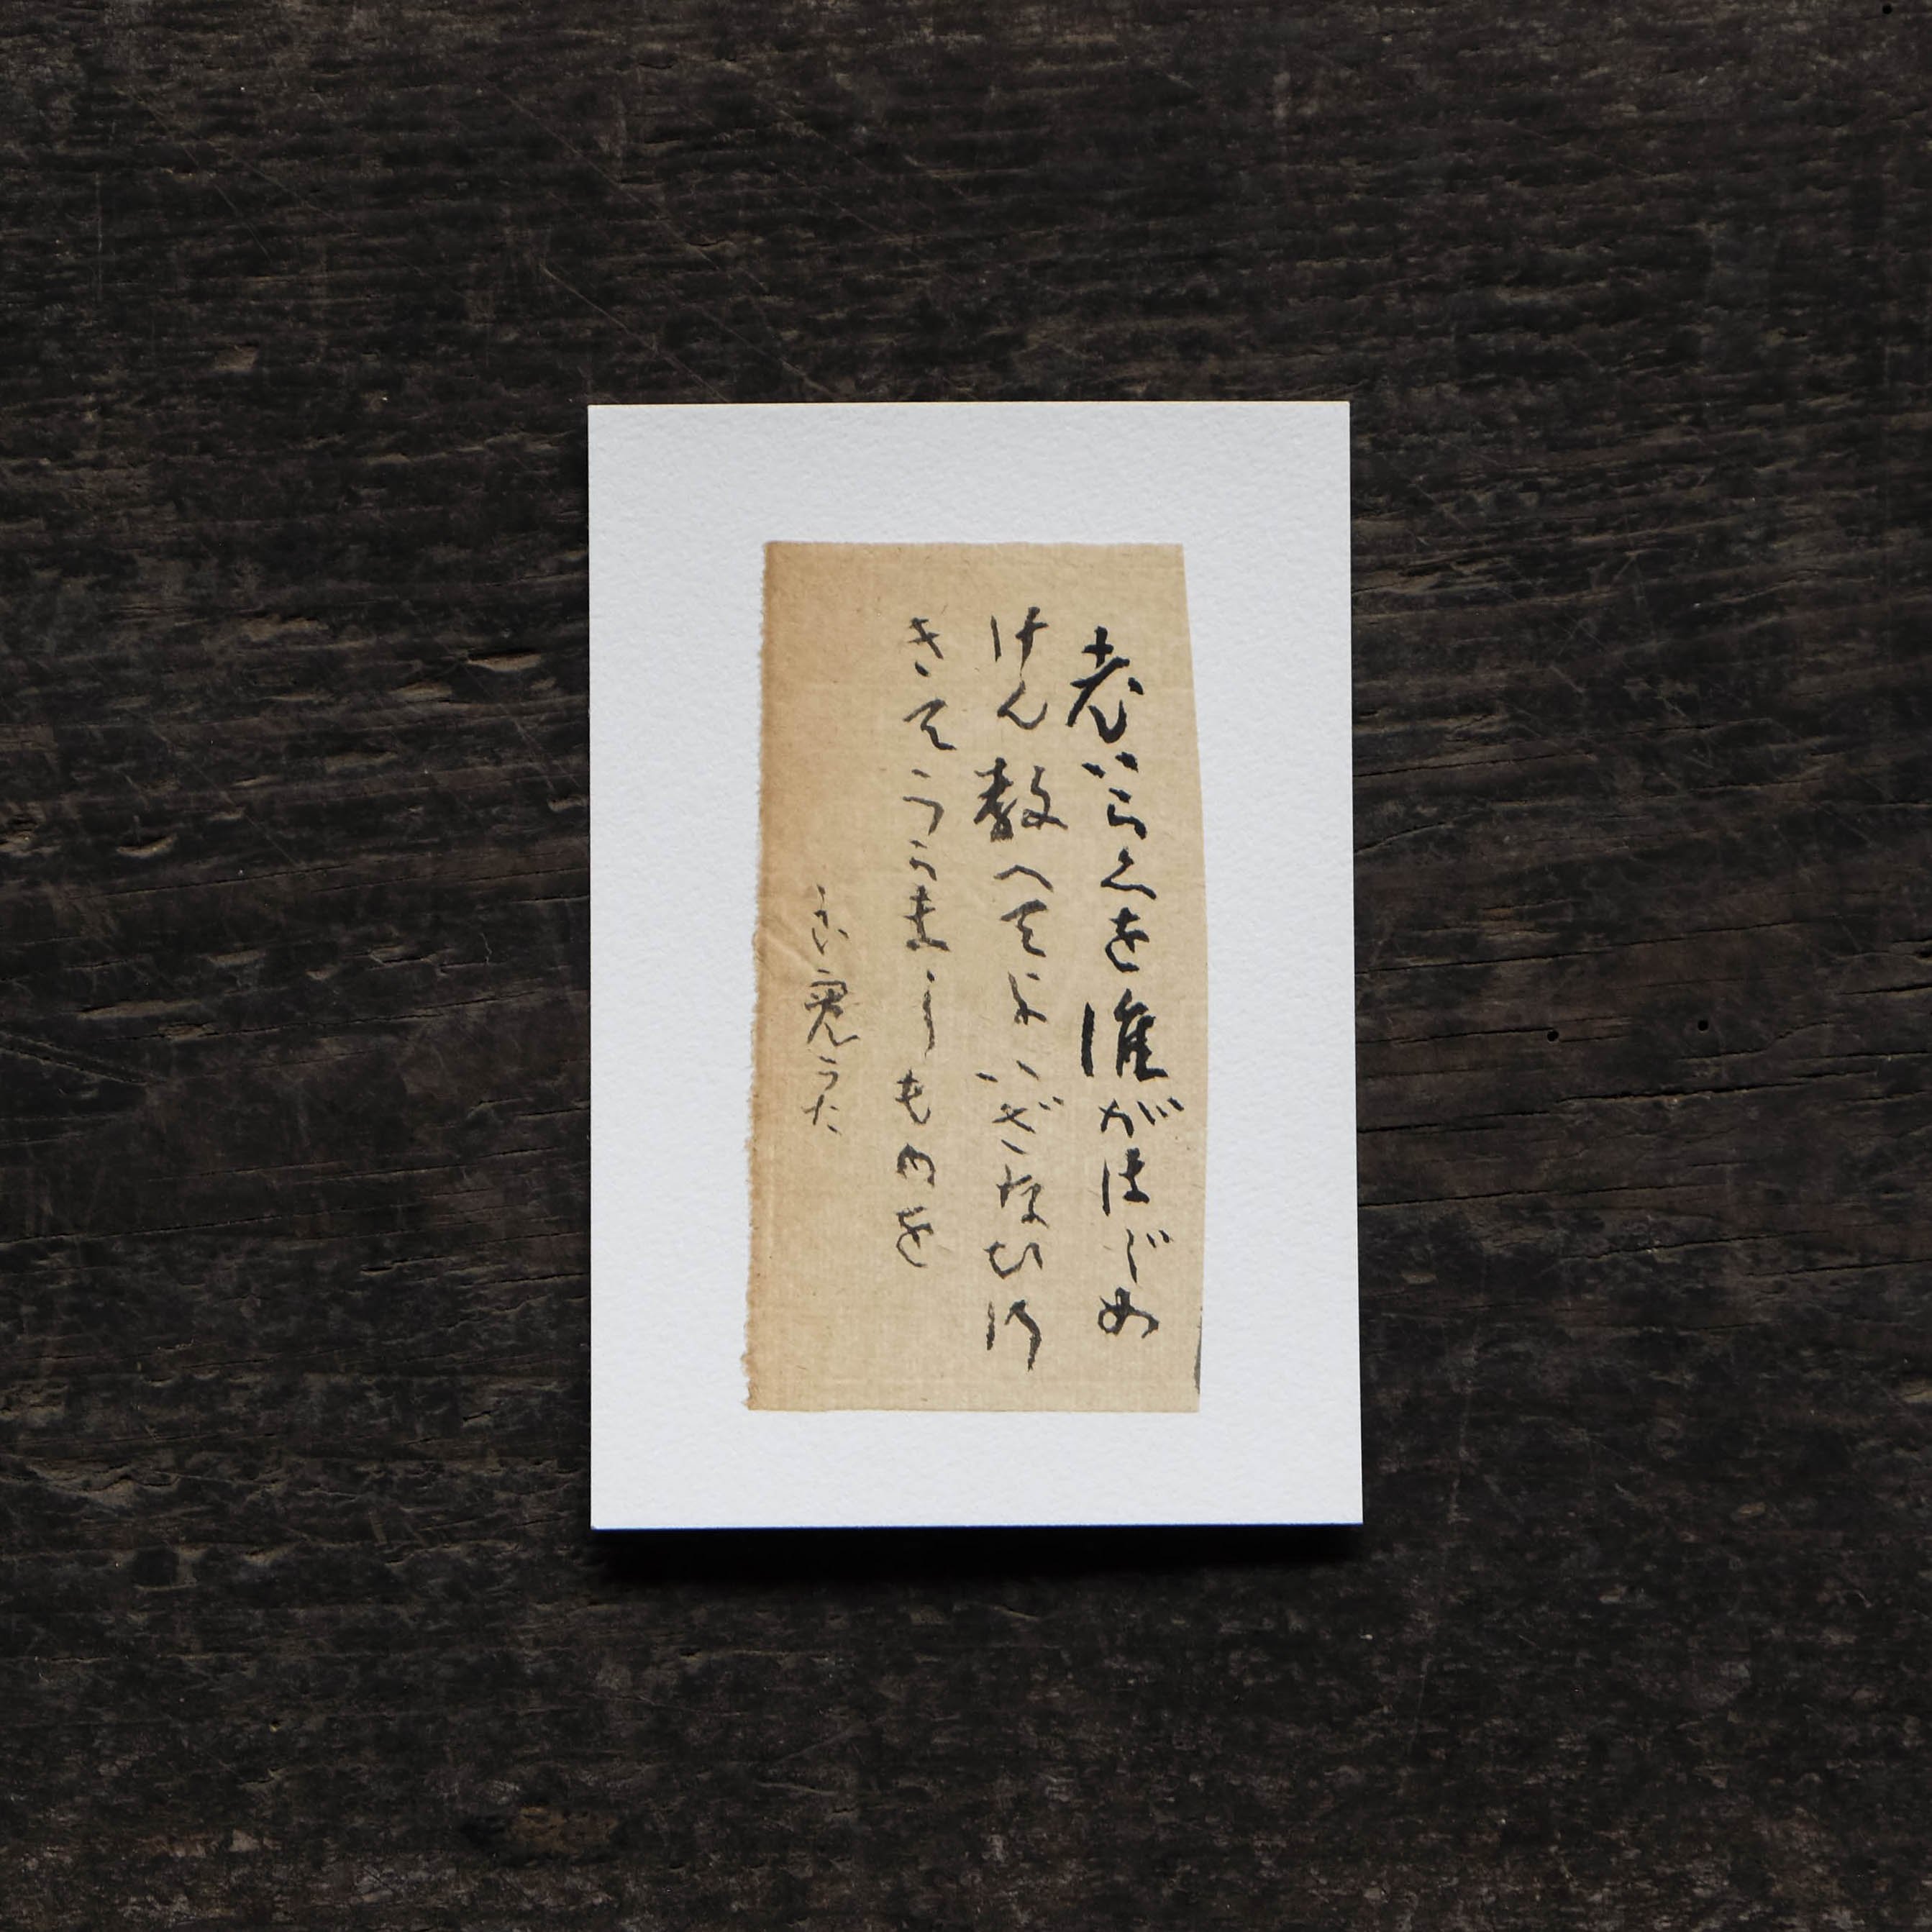 老いらくを誰がはじめ
けん教へてよいざなひゆ
きてうらましものを
良寛うた